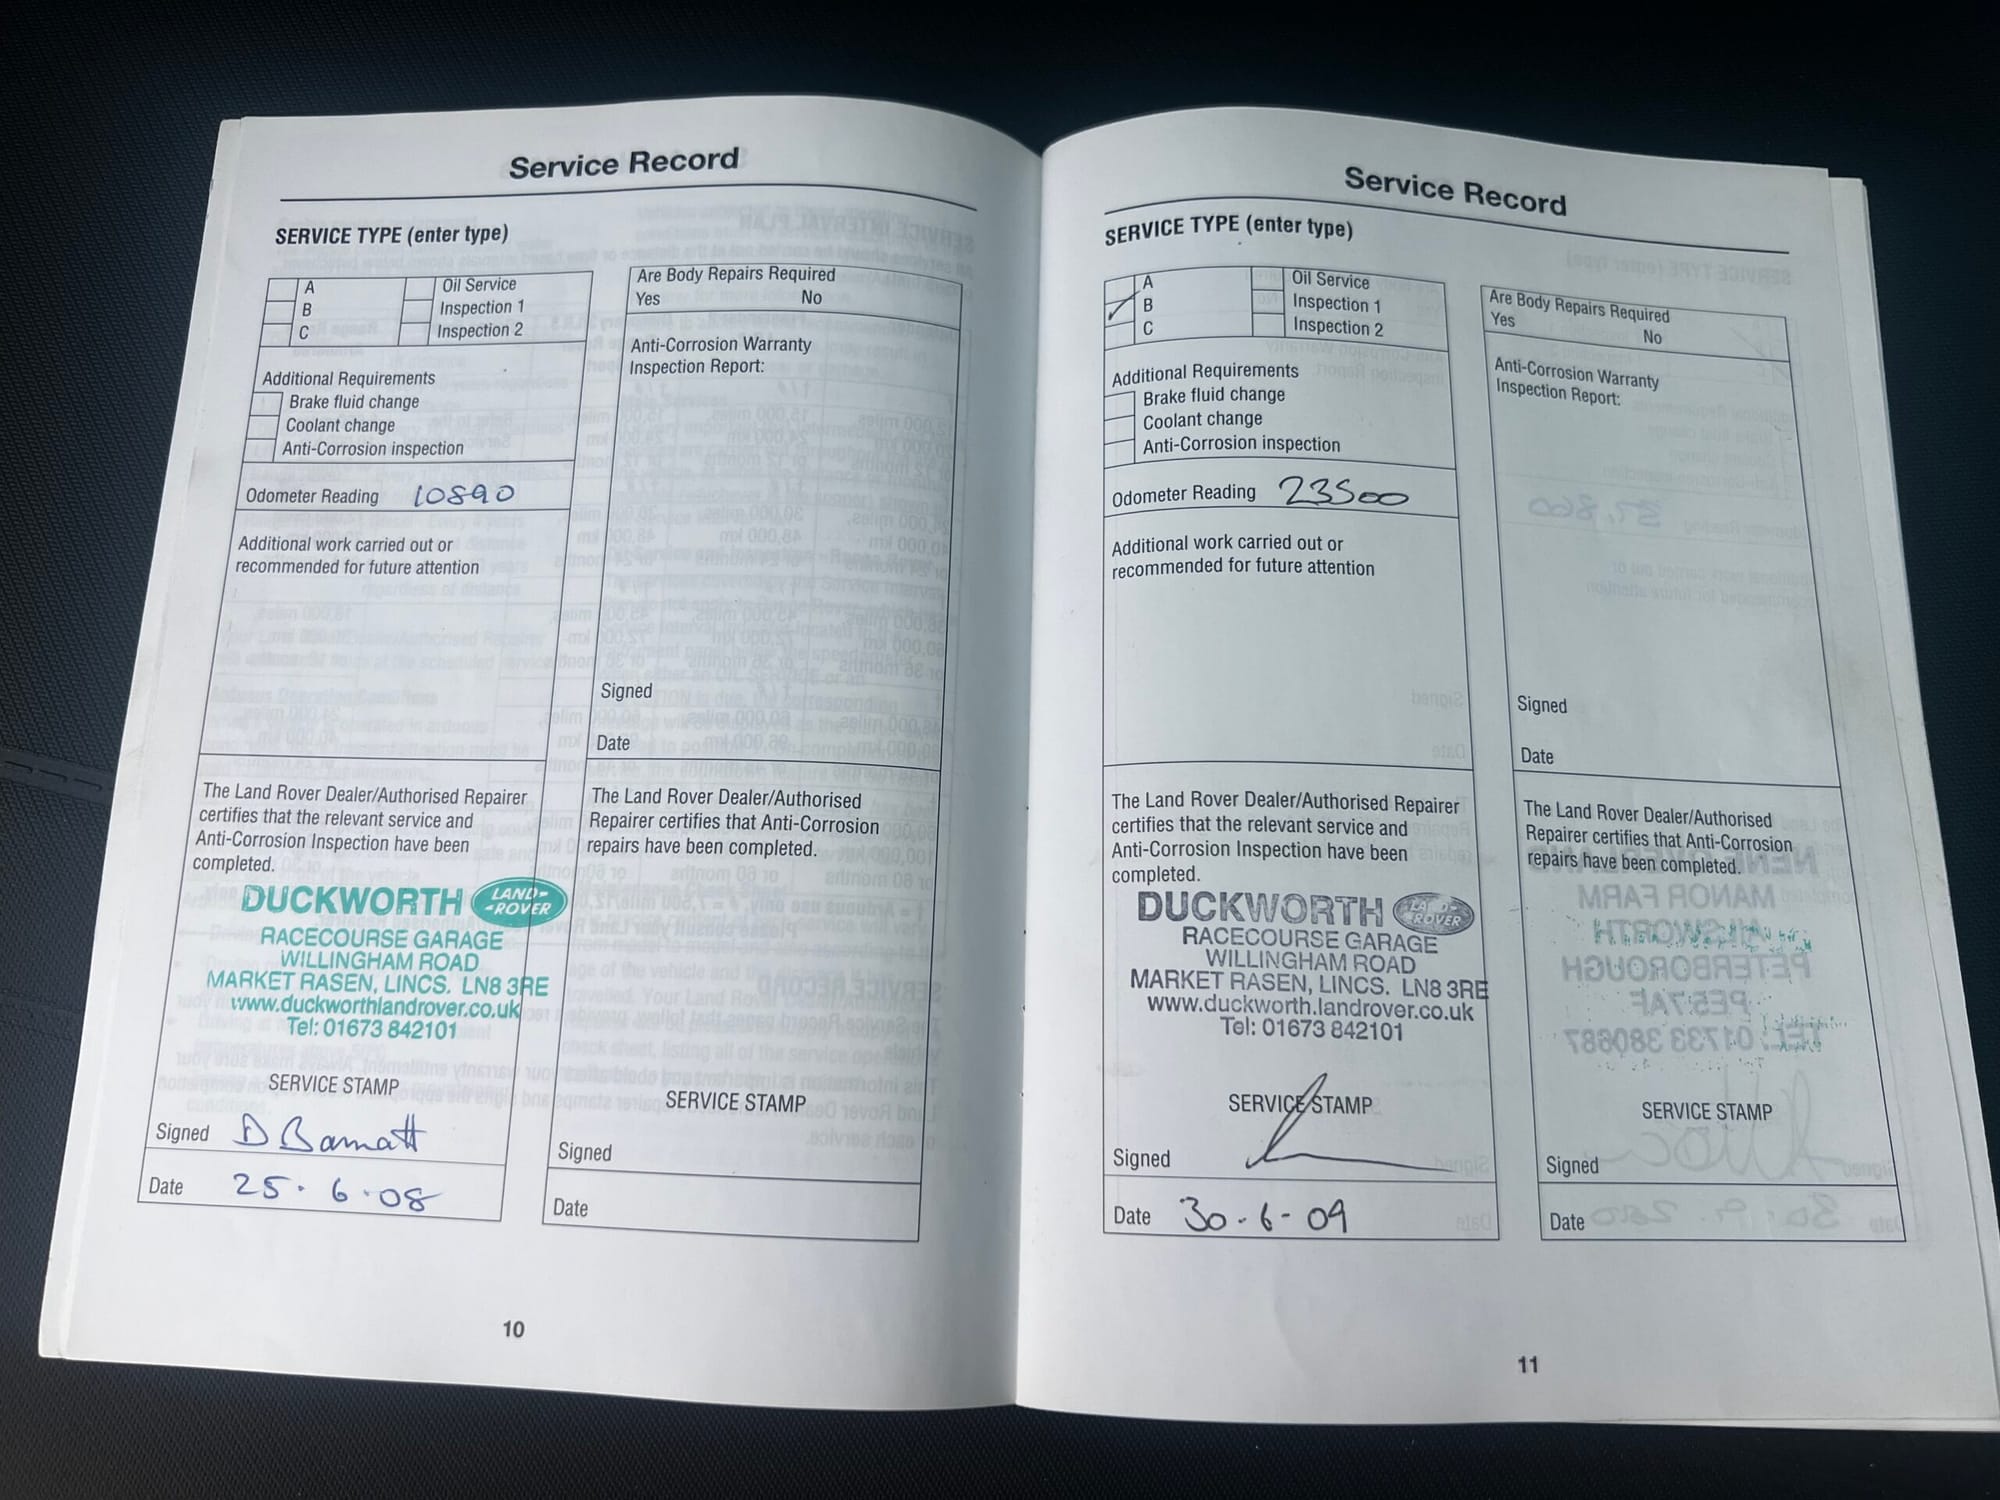 Service Record
SERVICE TYPE (enter type)
A
B
C
Oil Service
Inspection 1
Inspection 2
Additional Requirements
Brake fluid change
Coolant change
Anti-Corrosion inspection
Odometer Reading 10890
Additional work carried out or
recommended for future attention
The Land Rover Dealer/Authorised Repairer
certifies that the relevant service and
Anti-Corrosion Inspection have been
completed.
DUCKWORTH LAND-
-ROVER
RACECOURSE GARAGE
WILLINGHAM ROAD
MARKET RASEN, LINCS. LN8 3RE
www.duckworthlandrover.co.uk
Tel: 01673 842101
SERVICE STAMP
Signed D Barnatt
Date 25.6.08
Are Body Repairs Required
Yes No
Anti-Corrosion Warranty
Inspection Report:
Signed
Date
The Land Rover Dealer/Authorised
Repairer certifies that Anti-Corrosion
repairs have been completed.
SERVICE STAMP
Signed
Date
10
Service Record
SERVICE TYPE (enter type)
A
B
C
Oil Service
Inspection 1
Inspection 2
Additional Requirements
Brake fluid change
Coolant change
Anti-Corrosion inspection
Odometer Reading 23500
Additional work carried out or
recommended for future attention
The Land Rover Dealer/Authorised Repairer
certifies that the relevant service and
Anti-Corrosion Inspection have been
completed.
DUCKWORTH LAND-
-ROVER
RACECOURSE GARAGE
WILLINGHAM ROAD
MARKET RASEN, LINCS. LN8 3RE
www.duckworth.landrover.co.uk
Tel: 01673 842101
SERVICE STAMP
Signed
Date 30-6-09
Are Body Repairs Required
Yes No
Anti-Corrosion Warranty
Inspection Report:
Signed
Date
The Land Rover Dealer/Authorised
Repairer certifies that Anti-Corrosion
repairs have been completed.
SERVICE STAMP
Signed
Date
11